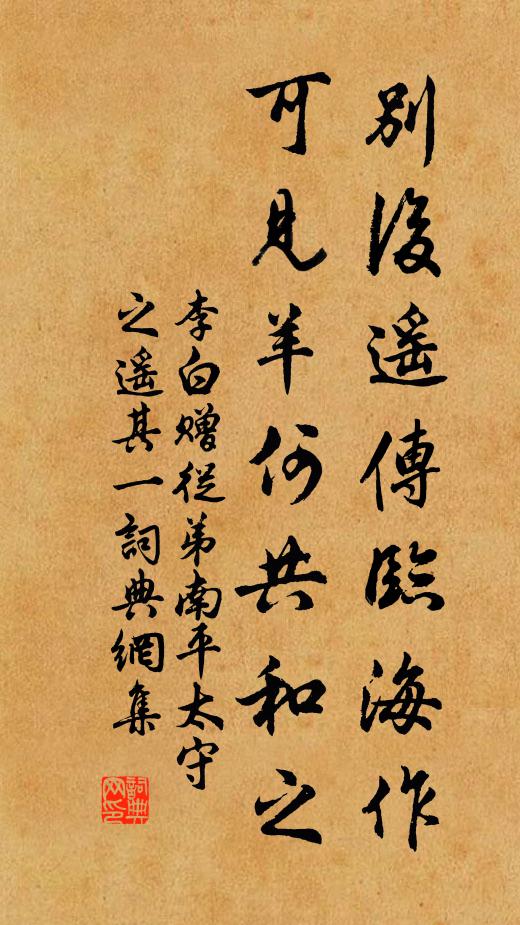 別後遥傳臨海作
可見羊何共和之
李白贈從弟南平太守
之遥其一詞典網集
詞典网印